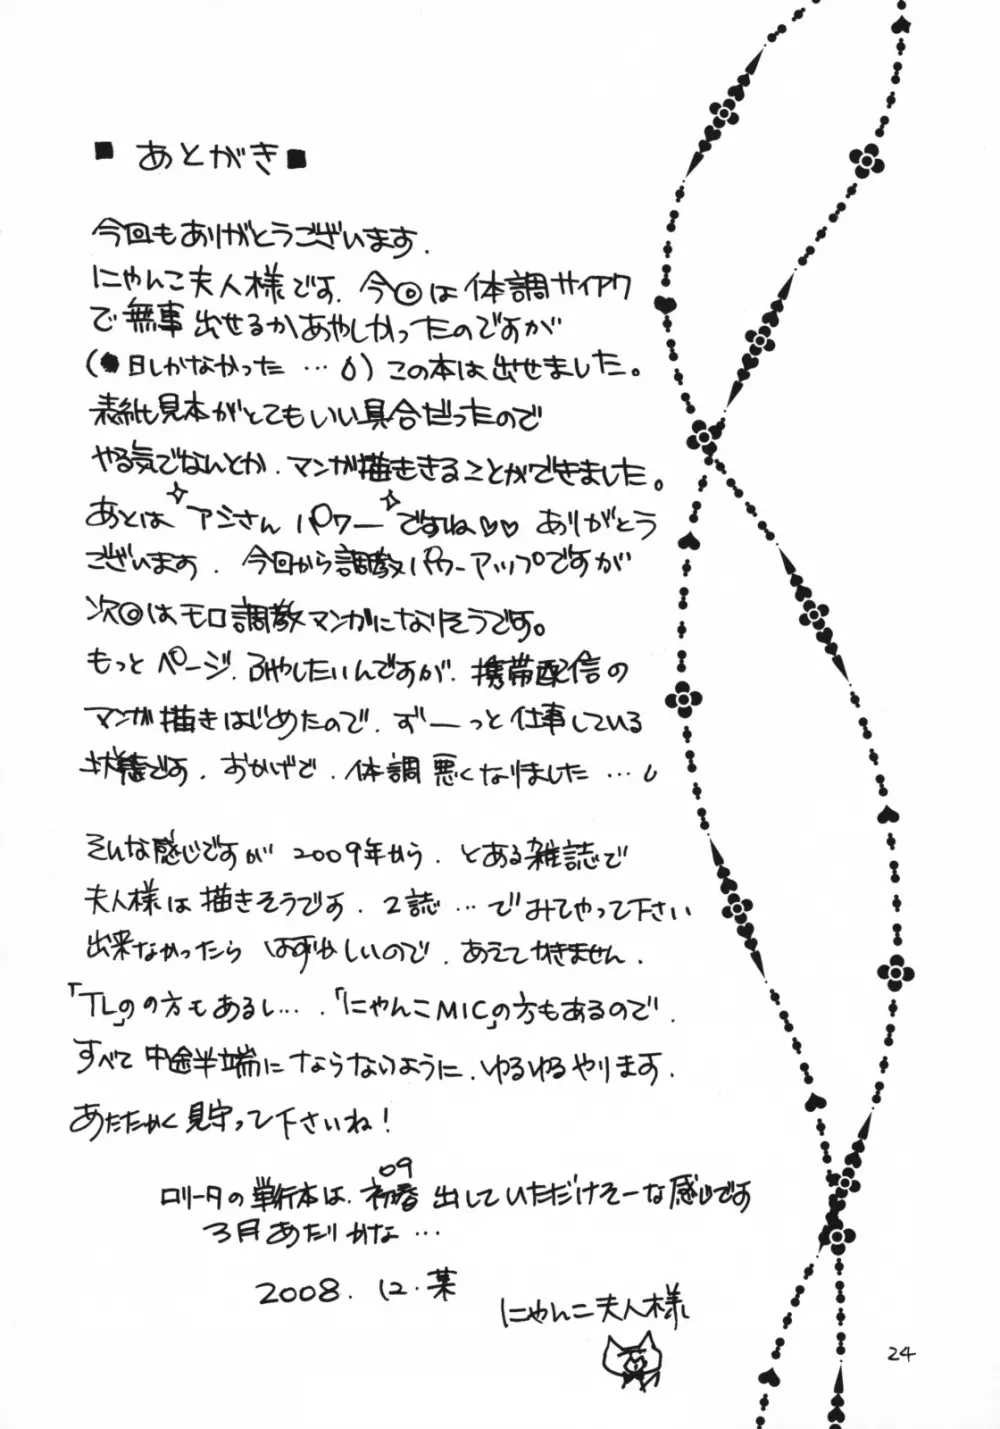 ■ あとがき ■
今回もありがとうございます.
にゃんこ夫人様です. 今回は体調サイアク
で無事出せるかあやしかったのですが
(●日しかなかった …) この本は出せました。
表紙見本がとてもいい具合だったので
やる気でなんとか. マンガ描ききることができました。
あとは アシさん パワー ですね♡♡ ありがとう
ございます. 今回から調教パワーアップですが
次回はモロ調教マンガになりそうです。
もっとページ. ふやしたいんですが. 携帯配信の
マンガ描きはじめたので. ずーっと仕事している
状態です. おかげで. 体調悪くなりました…
そんな感じですが 2009年から. とある雑誌で
夫人様は描きそうです. 2誌…でみてやって下さい
出来なかったら はずかしいので. あえてかきません.
「TL」のの方もあるし…. 「にゃんこMIC」の方もあるので.
すべて中途半端にならないように. ゆるゆるやります.
あたたかく見守って下さいね!
ロリータの単行本は. 09初春 出していただけそーな感じです
3月あたりかな…
2008. 12. 某
にゃんこ夫人様
24